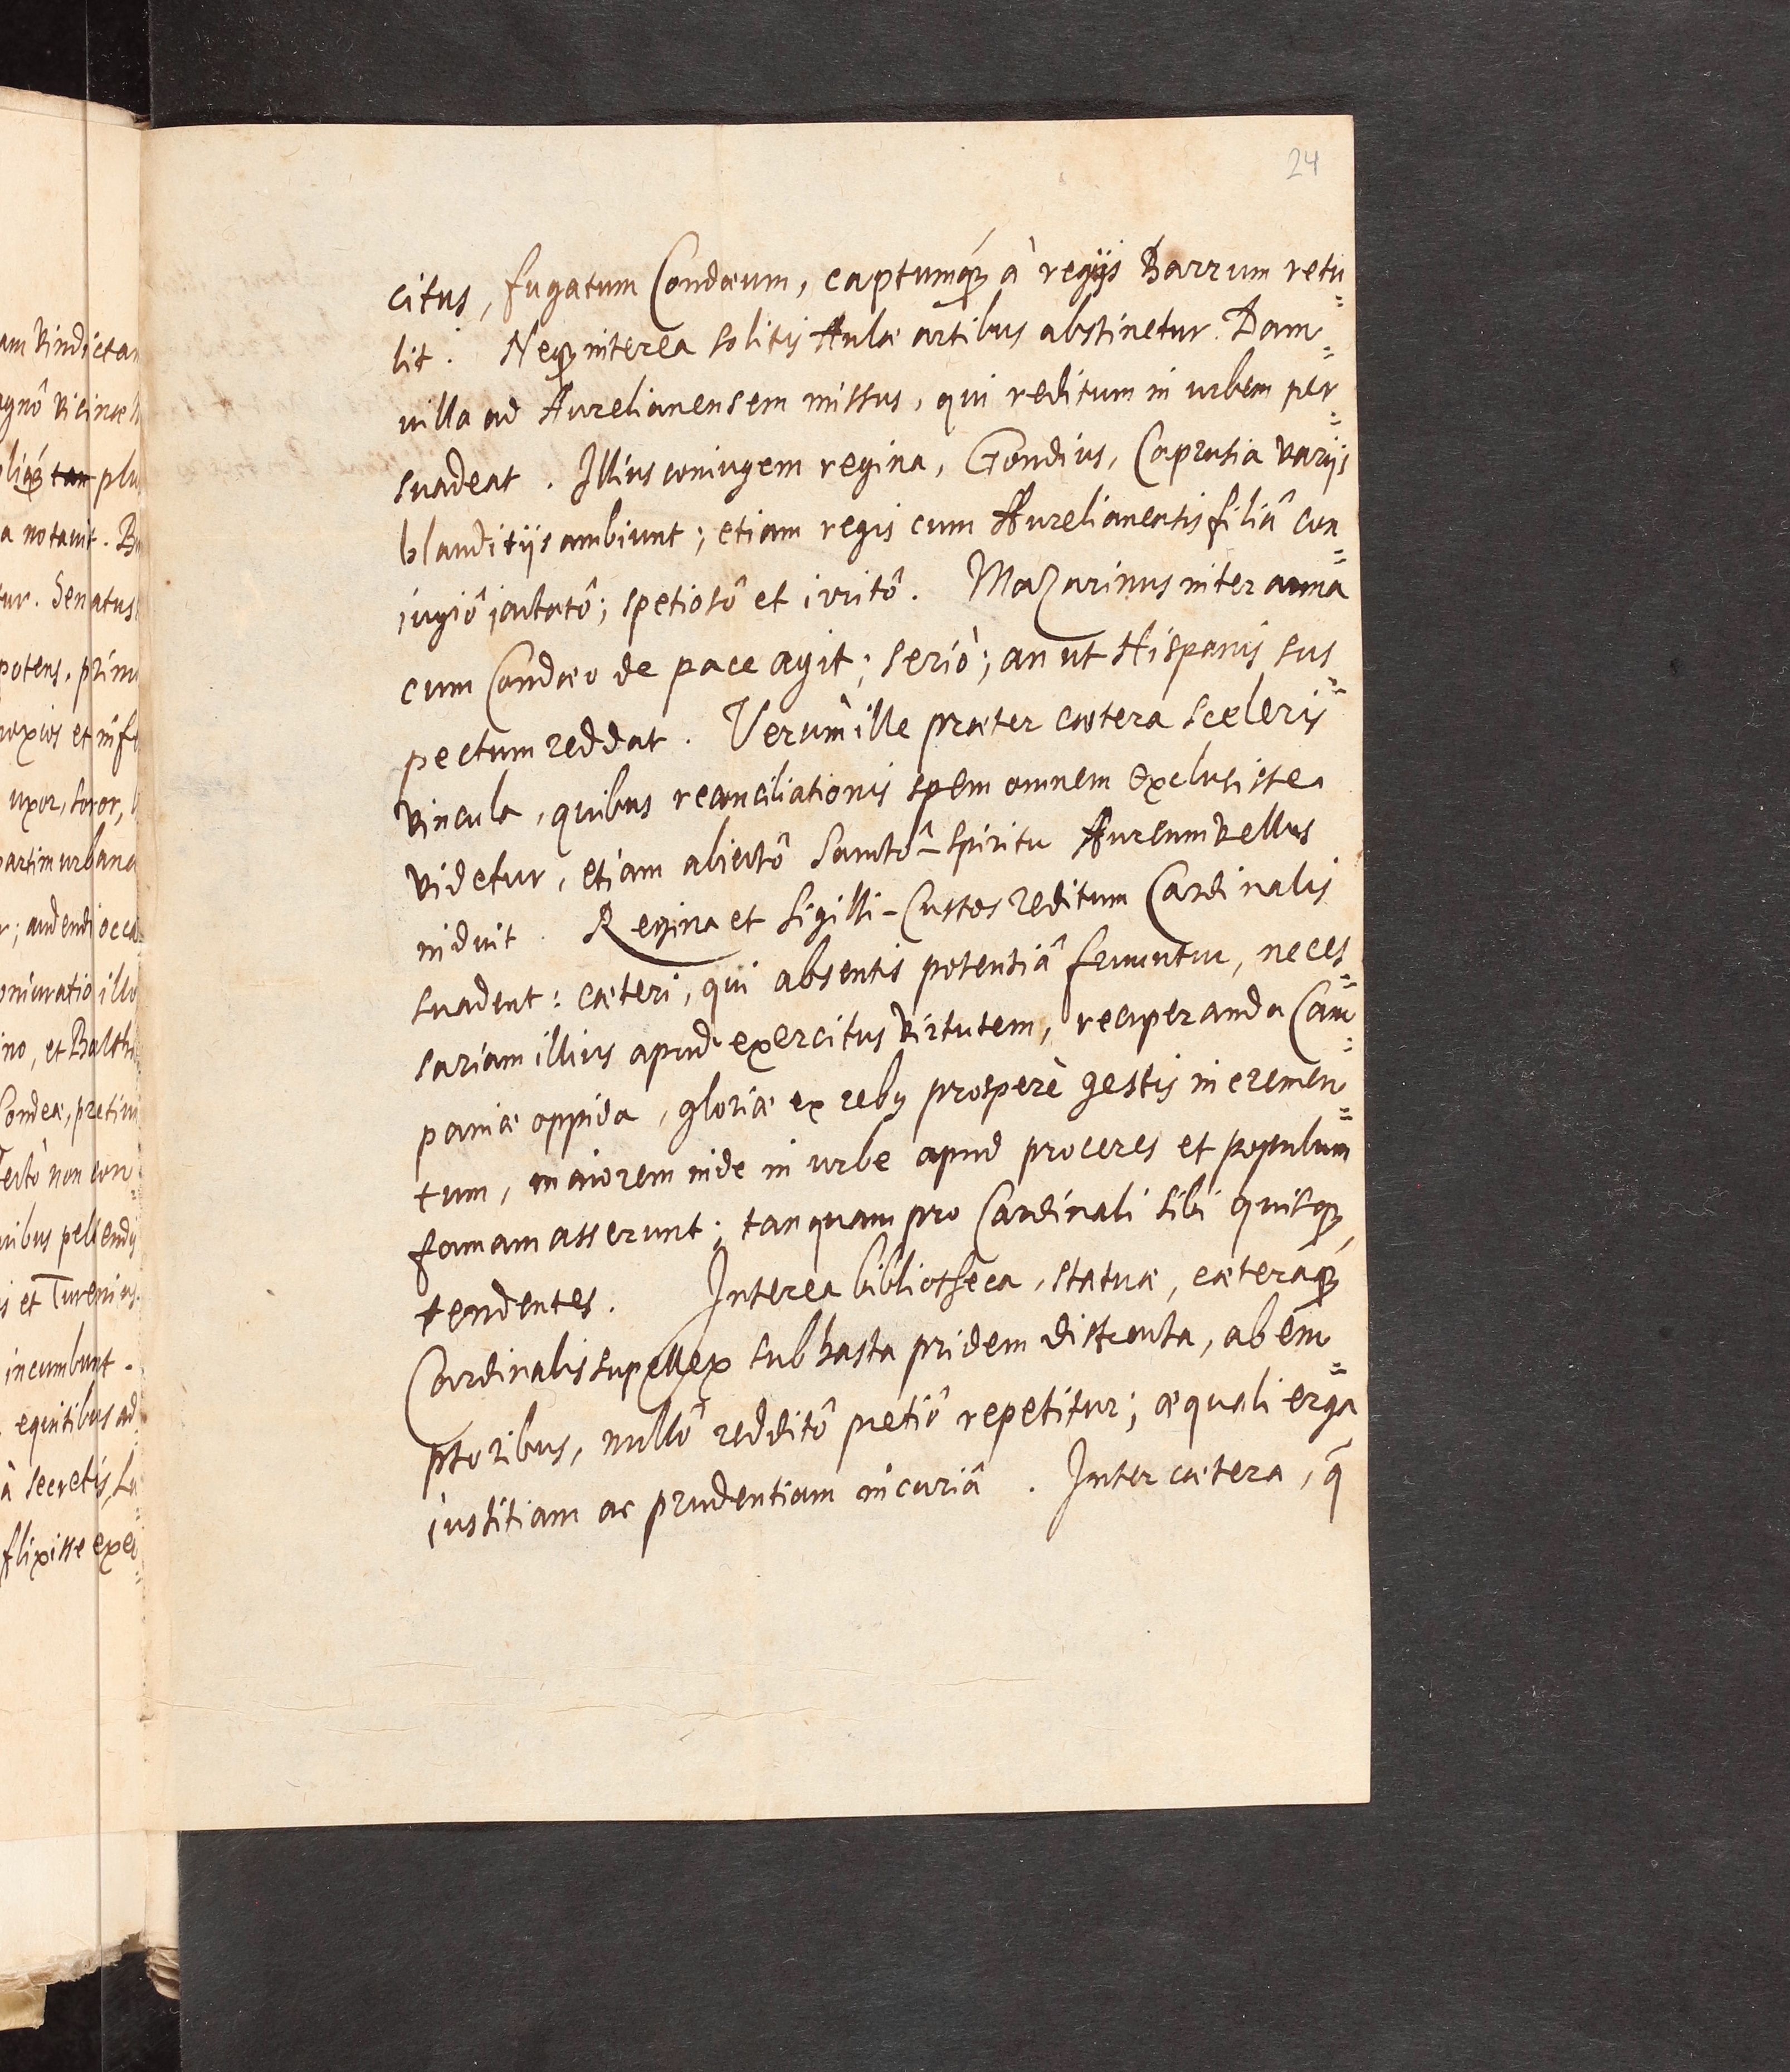 24
citus, fugatum Condæum, captumq́; à regijs Barrum retu=
lit. Neq; interea solitis Aulæ artibus abstinetur. Dam=
uilla ad Aurelianensem missus, qui reditum in urbem per=
suadeat. Illius coniugem regina, Gondius, Caprusia varijs
blanditijs ambiunt; etiam regis cum Aurelianensis filiâ con=
iugiô iactatô; spetiosô et irritô. Mazarinus inter arma
cum Condæo de pace agit; seriò; an ut Hispanis sus=
pectum reddat. Verum ille præter cætera sceleris
vincula, quibus reconciliationis spem omnem exclusisse
videtur, etiam abiectô Sanctô-Spiritu Aureum vellus
induit. Regina et Sigilli-Custos reditum Cardinalis
suadent: cæteri, qui absentis potentiâ fruuntur, neces=
sariam illius apud exercitus virtutem, recuperanda Cam=
paniæ oppida, gloriæ ex rebus prosperè gestis incremen=
tum, maiorem inde in urbe apud proceres et populum
famam asserunt; tanquam pro Cardinali sibi quisq;
tendentes. Interea bibliotheca, statuæ, cæteraq́;
Cardinalis supellex sub hasta pridem distracta, ab em=
ptoribus, nullô redditô pretiô repetitur; æquali erga
iustitiam ac prudentiam incuriâ. Inter cætera, q̃
am vindictam
agnô vicinæ
liq́; tan plu
a notauit. B
tur. Senatus
potens, prim
noxios et inf
uxor, soror,
partim urbana
r; audendi occa=
oniuratio illo
ino, et Balth
Condeæ, pretiu
tectô non con=
uibus pellendis
is et Turenius
incumbunt.
equitibus ad
à secretis, La
flixisse exer=